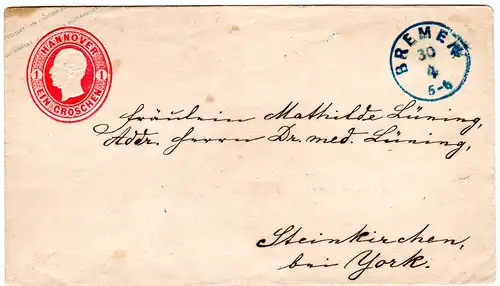 HANNOVER
1 1
EIN GROSCHEN
BREMEN
30
4
5-6
Fräulein Mathilde Lüning,
Addr. Herrn Dr. med. Lüning,
Steinkirchen,
bei York.